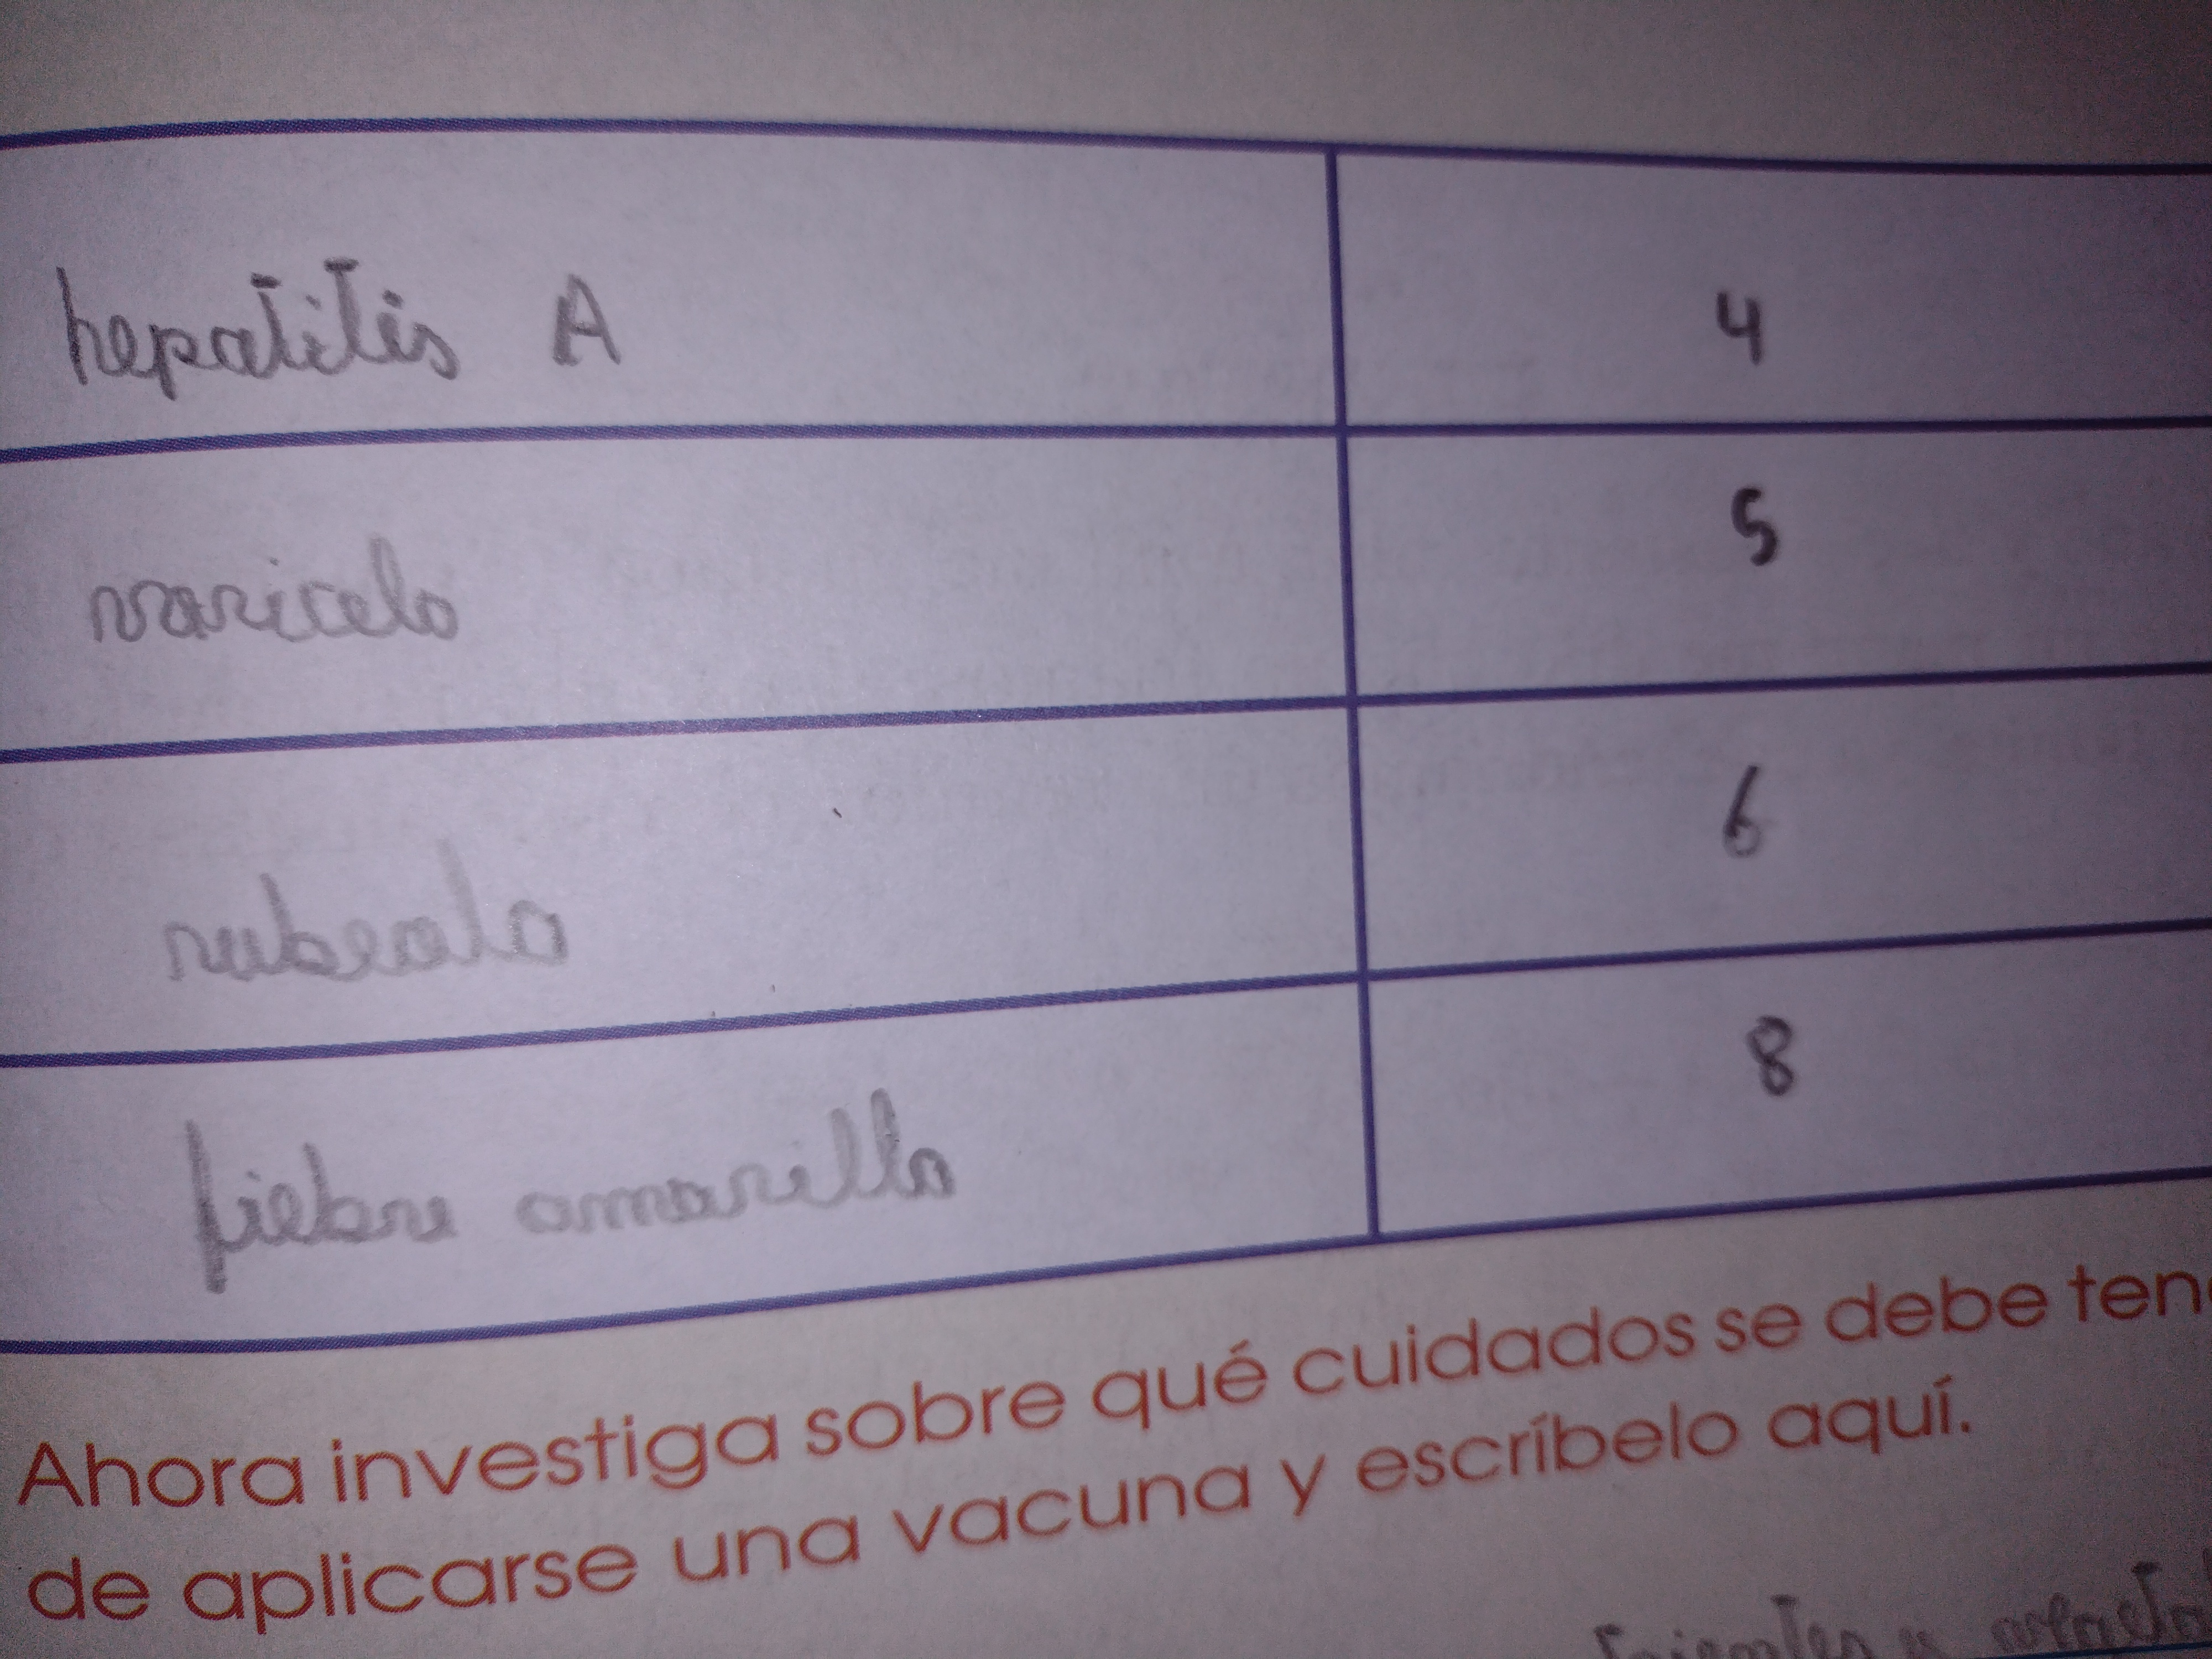 hepatitis A 4
varicela 5
rubeola 6
fiebre amarilla 8
Ahora investiga sobre qué cuidados se debe
de aplicarse una vacuna y escríbelo aquí.